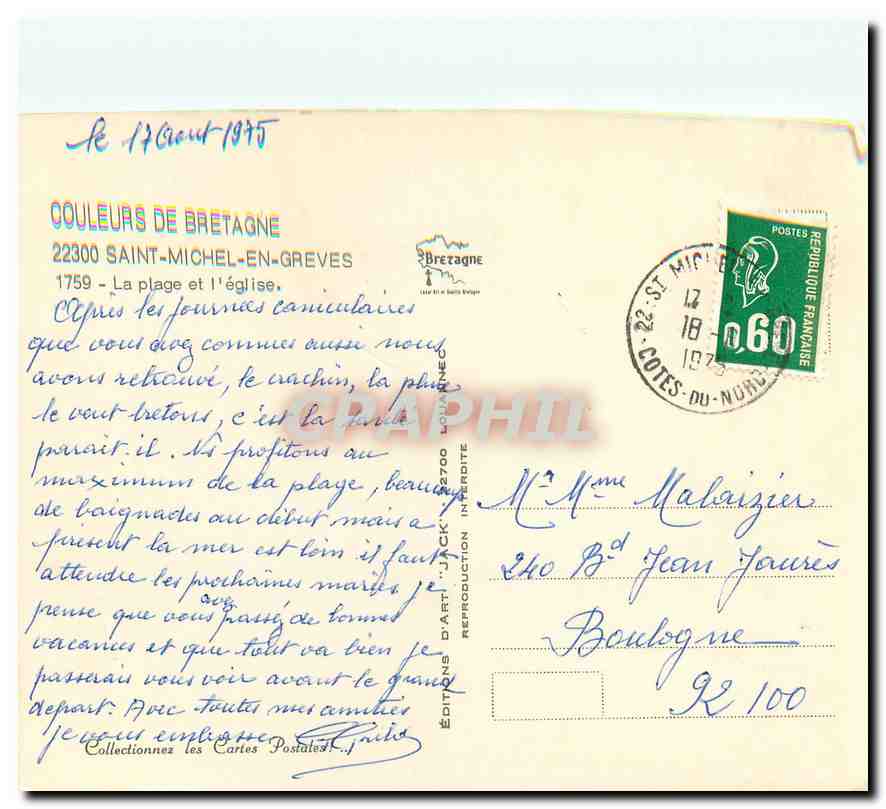 le 17 Aout 1975
COULEURS DE BRETAGNE
22300 SAINT-MICHEL-EN-GREVES
1759 - La plage et l'église.
Bretagne
Après les journées caniculaires
que vous avez connues aussi nous
avons retrouvé, le crachin, la pluie
le vent breton, c'est la santé
parait-il. Ns profitons au
maximum de la plage, beaucoup
de baignades au début mais a
présent la mer est loin il faut
attendre les prochaines marées je
pense que vous avez passé de bonnes
vacances et que tout va bien je
passerais vous voir avant le grand
depart. Avec toutes mes amitiés
je vous embrasse
Collectionnez les Cartes Postales
ÉDITIONS D'ART "JACK" 22700 LOUANNEC
REPRODUCTION INTERDITE
CPAPHIL
POSTES
REPUBLIQUE FRANÇAISE
0,60
22 ST MICHEL
17
18
1975
COTES-DU-NORD
Mr Mme Malaizier
240 Bd Jean Jaurès
Boulogne
92 100